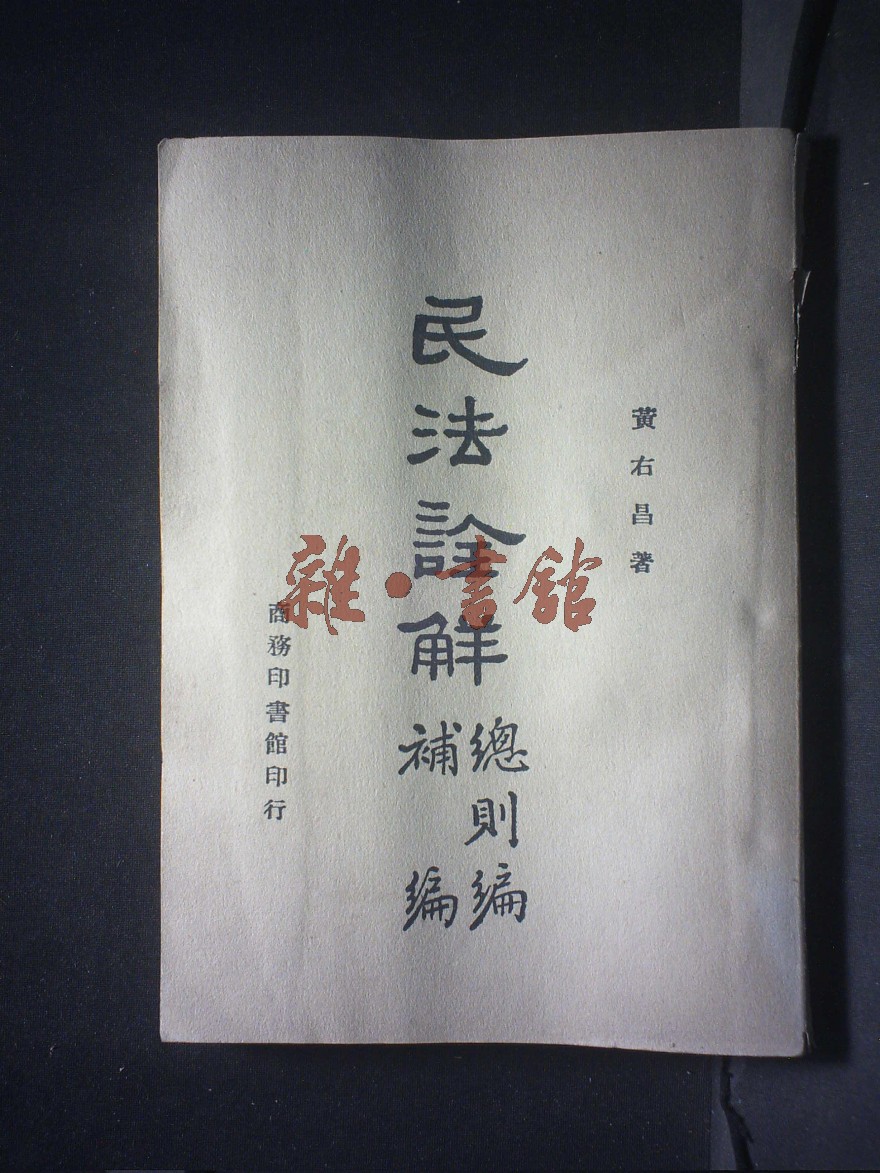 黃右昌著
民法詮解
總則編
補編
商務印書館印行
雜·書館